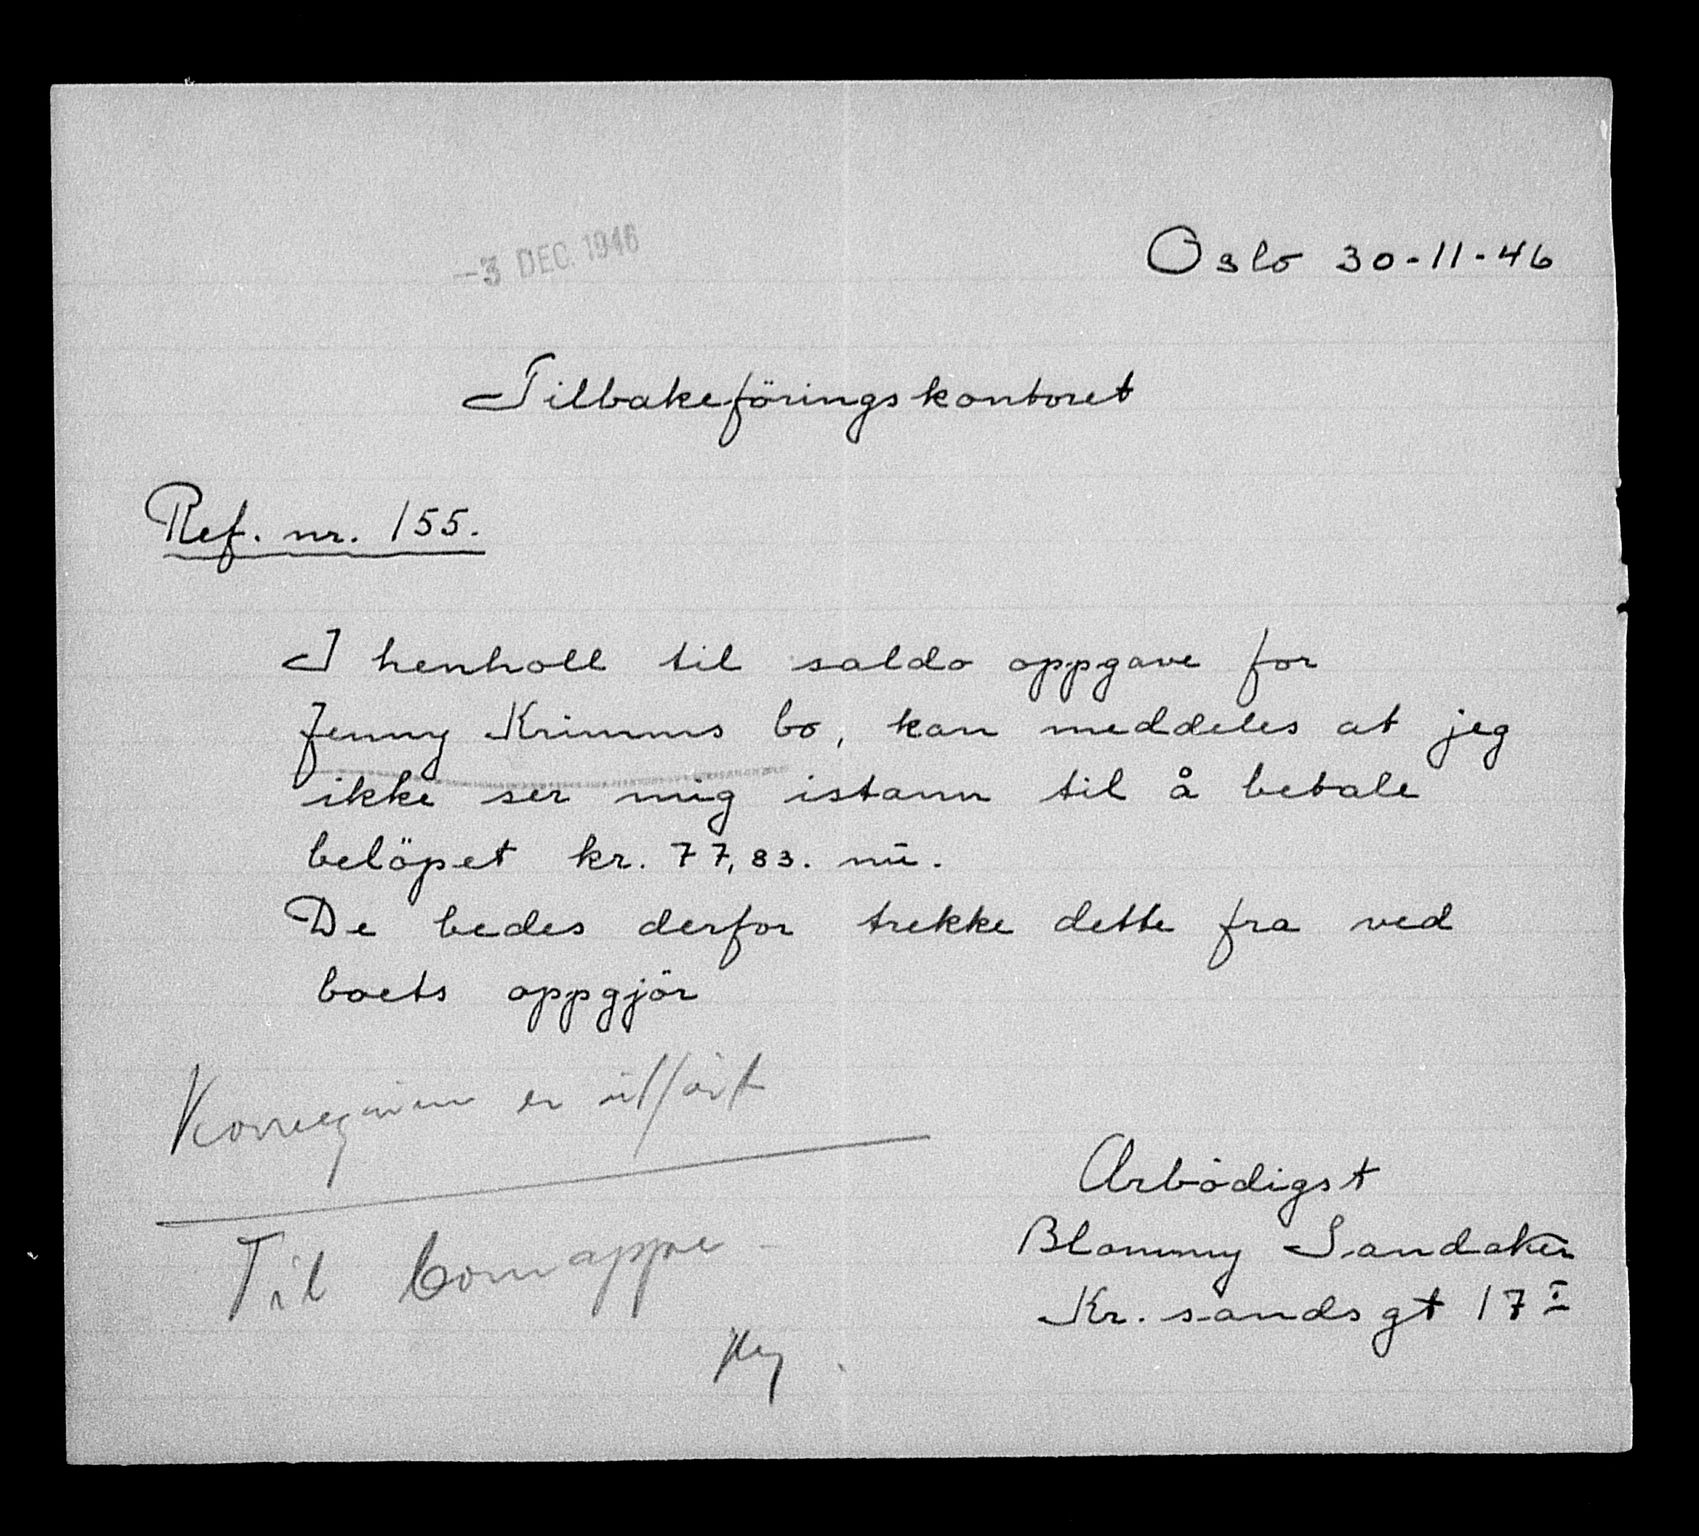 Oslo 30-11-46
-3 DEC. 1946
Tilbakeföringskontoret
Ref. nr. 155.
I henholl til saldo oppgave for
Jenny Krimms bo, kan meddeles at jeg
ikke ser mig istann til å betale
belöpet kr. 77,83. nū.
De bedes derfor trekke dette fra ved
boets oppgjör
er utfört
Til bomappe
Arbödigst
Blommy Sandaker
Kr.sandsgt 17 I